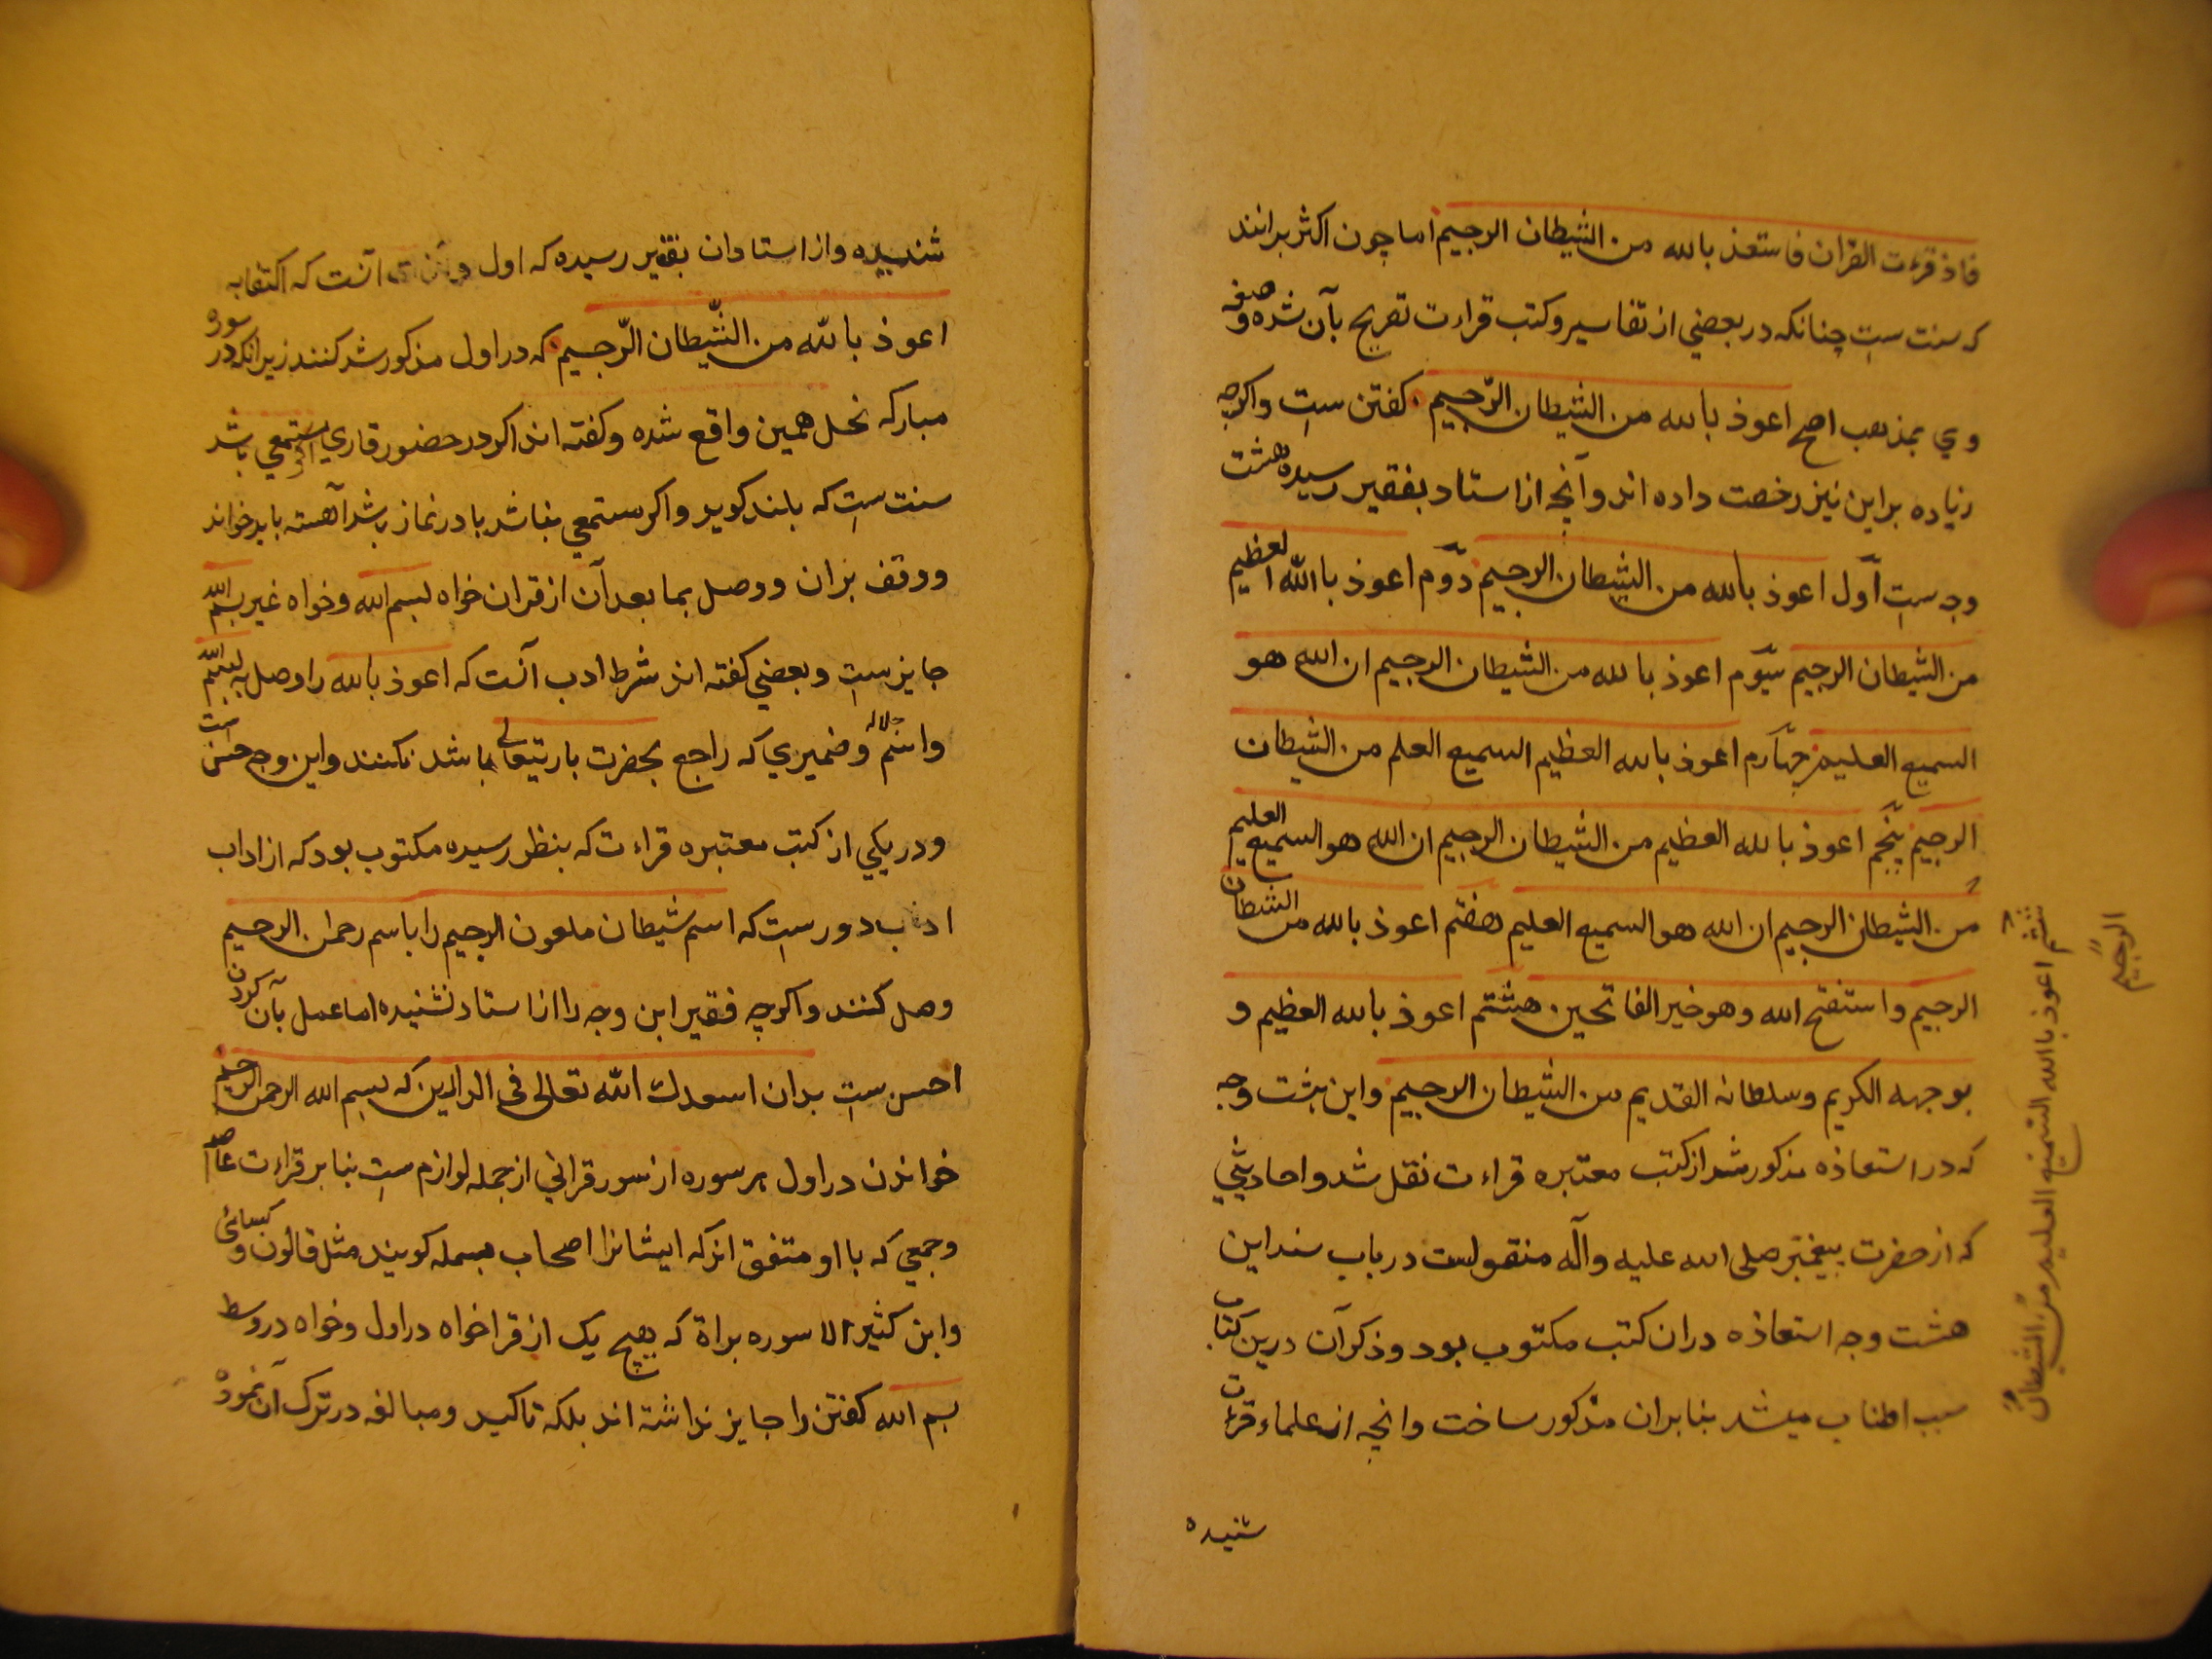 فاذ قرءت القران فاستعذ بالله من الشیطان الرجیم اما چون اکثر برانند
که سنت ست چنانکه در بعضی از تفاسیر و کتب قراءت تصریح بآن شده و صفه
وی بمذهب اصح اعوذ بالله من الشیطان الرّجیم کفتن ست واکرچه
زیاده براین نیز رخصت داده اند وآنچه از استاد بفقیر رسیده هشت
وجه ست اوّل اعوذ بالله من الشیطان الرجیم دوّم اعوذ باالله العظیم
من الشیطان الرجیم سیّوم اعوذ بالله من الشیطان الرجیم ان الله هو
السمیع العلیم چهارم اعوذ بالله العظیم السمیع العلم من الشیطان
الرجیم پنجم اعوذ بالله العظیم من الشیطان الرجیم ان الله هو السمیع العلیم
من الشیطان الرجیم ان الله هو السمیع العلیم هفتم اعوذ بالله من الشیطان
الرجیم واستفتح الله وهو خیر الفاتحین هشتم اعوذ بالله العظیم و
بوجهه الکریم وسلطانه القدیم من الشیطان الرجیم واین هشت وجه
که در استعاذه مذکور شد از کتب معتبره قراءت نقل شد واحادیثی
که از حضرت پیغمبر صلی الله علیه وآله منقولست در باب سند این
هشت وجه استعاذه دران کتب مکتوب بود وذکر آن درین کتاب
سبب اطناب میشد بنابران مذکور ساخت وانچه از علماء قراءت
شنیده
ششم اعوذ بالله السمیع العلیم من الشیطان
الرجیم
شنیده واز استادان بفقیر رسیده که اول آنست که اکتفا به
اعوذ باللّه من الشّیطان الرّجیم که در اول مذکور شد کنند زیرانکه در سوره
مبارکه نحل همین واقع شده وکفته اند اکر در حضور قاری مستمعی باشد
سنت ست که بلند کوید واکر مستمعی نباشد یا در نماز باشد آهسته باید خواند
ووقف بران ووصل بما بعد آن از قران خواه بسم الله وخواه غیر بسم الله
جایز ست وبعضی کفته اند شرط ادب آنست که اعوذ بالله را وصل به بسم الله
واسم جلاله وضمیری که راجع بحضرت باریتعالی باشد نکنند واین وجه حسن ست
ودر یکی از کتب معتبره قراءت که بنظر رسیده مکتوب بود که از اداب
اداب دور ست که اسم شیطان ملعون الرجیم را باسم رحمان الرحیم
وصل کنند واکرچه فقیر این وجه را از استاد نشنیده اما عمل بآن کردن
احسن ست بدان اسعدک اللّه تعالی فی الدارین که بسم الله الرحمن الرحیم
خواندن در اول هر سوره از سور قرانی از جمله لوازم ست بنابر قراءت عاصم
وجمعی که با او متفق اند که ایشانرا اصحاب بسمله کویند مثل قالون وکسائی
وابن کثیر الا سوره براة که هیچ یک از قرا خواه در اول وخواه در وسط
بسم الله کفتن را جایز نداشته اند بلکه تاکید ومبالغه در ترک آن نموده